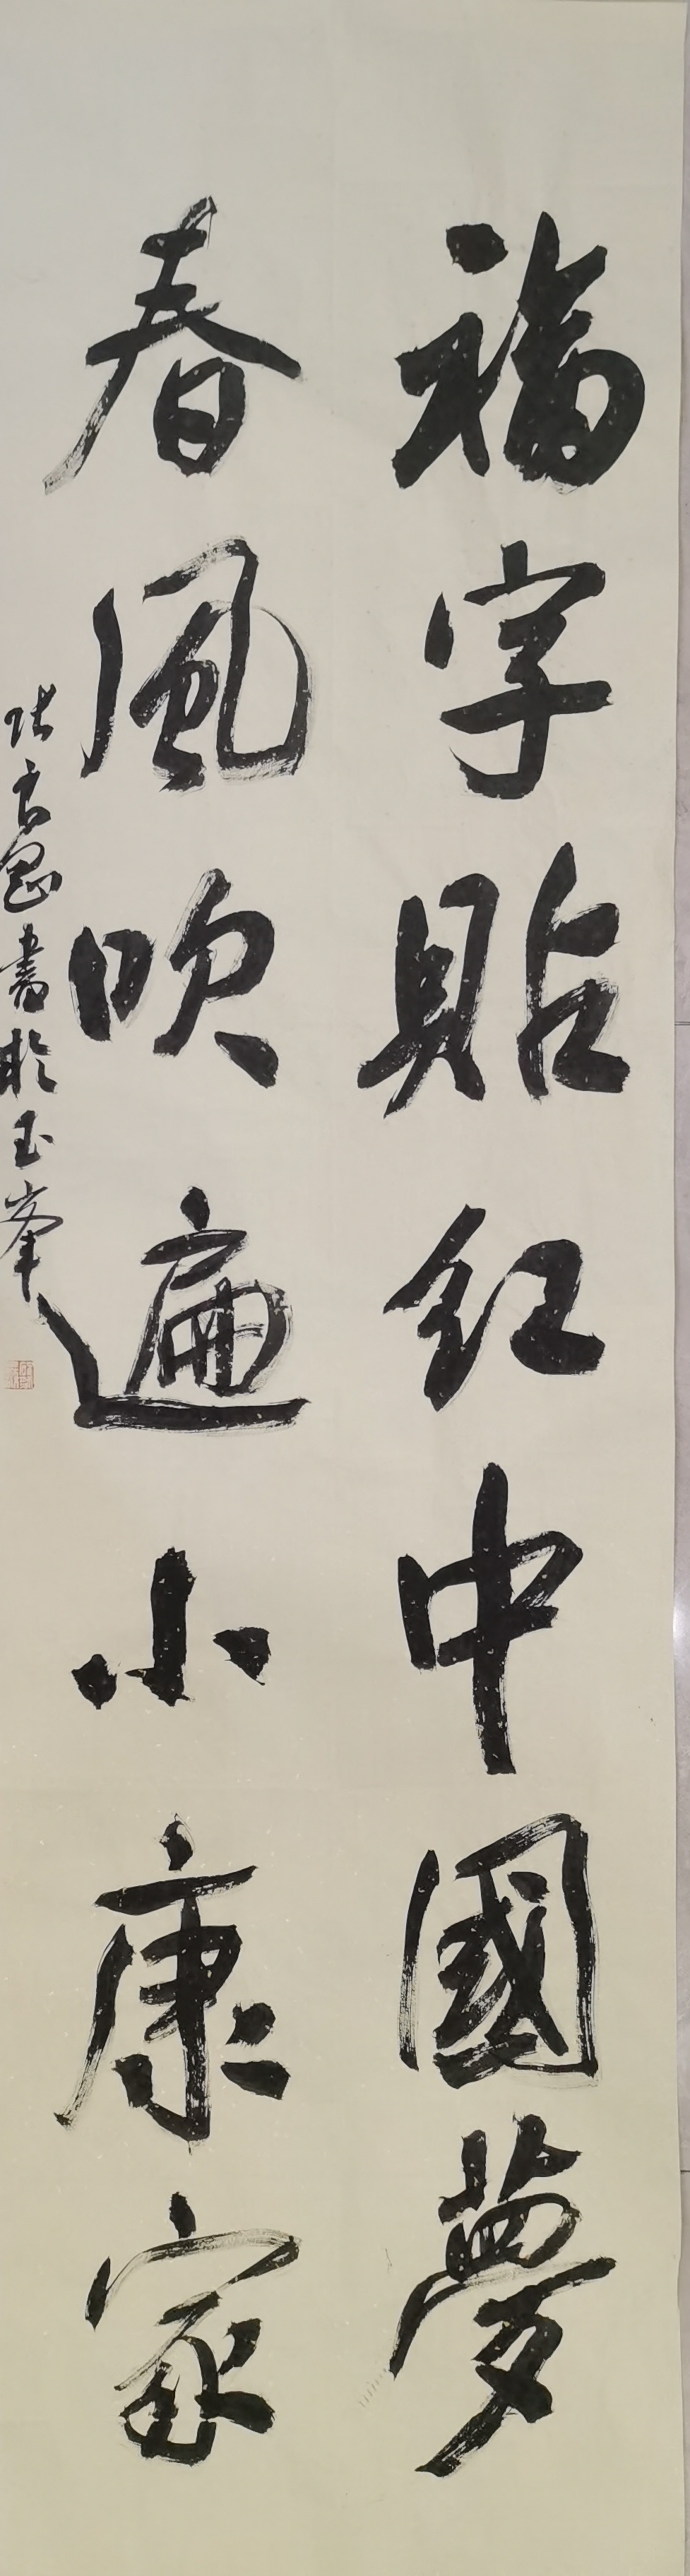 福字貼红中國夢
春風吹遍小康家
書於玉峯